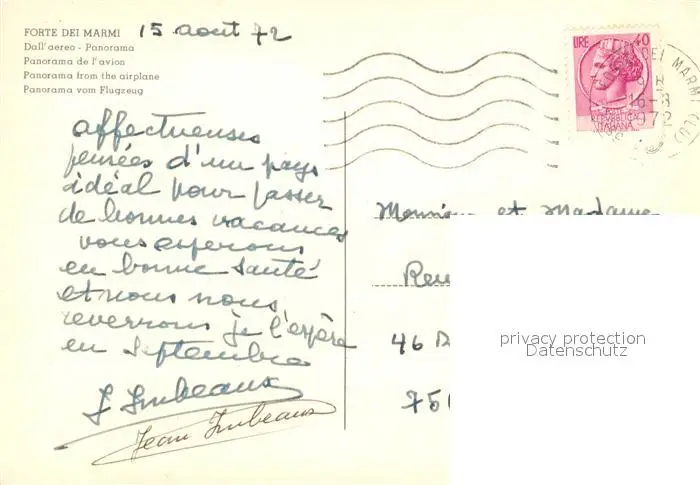 FORTE DEI MARMI 15 aout 72
Dall'aereo - Panorama
Panorama de l'avion
Panorama from the airplane
Panorama vom Flugzeug
affectueuses
pensées d'un pays
idéal pour passer
de bonnes vacances
vous esperons
en bonne santé
et nous nous
reverrons je l'espère
en Septembre
J Imbeaux
Jean Imbeaux
LIRE 40
POSTE
REPUBBLICA
ITALIANA
DEI MARMI
16-8
1972
(LU)
Monsieur et Madame
Ren
46
75
privacy protection
Datenschutz